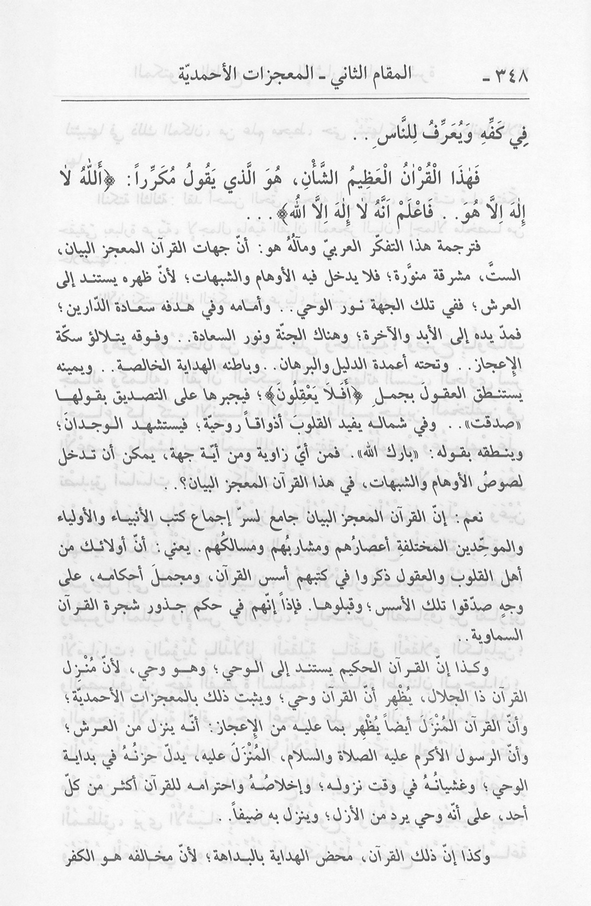 ٣٤٨ - المقام الثاني - المعجزات الأحمديّة
فِي كَفِّهِ وَيُعَرِّفُ لِلنَّاسِ . .
فَهٰذَا الْقُرْاٰنُ الْعَظِيمُ الشَّأْنِ، هُوَ الَّذي يَقُولُ مُكَرِّراً: ﴿أَللهُ لاَ
إِلٰهَ اِلاَّ هُوَ. . فَاعْلَمْ اَنَّهُ لاَ إِلٰهَ اِلاَّ اللهُ﴾ . . .
فترجمة هذا التفكّر العربيّ ومآلُهُ هو: أنّ جهات القرآن المعجز البيان،
الستّ، مشرقة منوَّرة؛ فلا يدخل فيه الأوهام والشبهات؛ لأنّ ظهره يستند إلى
العرش؛ ففي تلك الجهة نور الوحي. . وأمامه وفي هدفه سعادة الدّارين؛
فمدّ يده إلى الأبد والآخرة؛ وهناك الجنّة ونور السعادة. . وفوقه يتلالؤ سكّة
الإعجاز. . وتحته أعمدة الدليل والبرهان. . وباطنه الهداية الخالصة. . ويمينه
يستنطق العقولَ بجملِ ﴿أَفَلَا يَعْقِلُونَ﴾؛ فيجبرها على التصديق بقولها
«صدقت». . وفي شماله يفيد القلوبَ أذواقاً روحيّة؛ فيستشهد الوجدانَ؛
وينطقه بقوله: «بارك الله». فمن أيّ زاوية ومن أيّة جهة، يمكن أن تدخل
لصوصُ الأوهام والشبهات، في هذا القرآن المعجز البيان؟. .
نعم: إنّ القرآن المعجز البيان جامع لسرّ إجماع كتب الأنبياء والأولياء
والموحّدين المختلفةِ أعصارُهم ومشاربُهم ومسالكُهم. يعني: أنّ أولائك من
أهل القلوب والعقول ذكروا في كتبهم أسس القرآن، ومجملَ أحكامه، على
وجهٍ صدّقوا تلك الأسس؛ وقبلوها. فإذاً إنّهم في حكم جذور شجرة القرآن
السماوية. .
وكذا إنّ القرآن الحكيم يستند إلى الوحي؛ وهو وحي، لأنّ مُنْزِل
القرآن ذا الجلال، يُظْهِر أنّ القرآن وحي؛ ويثبت ذلك بالمعجزات الأحمديّة؛
وأنّ القرآن المُنْزَل أيضاً يُظْهِر بما عليه من الإعجاز: أنّه ينزل من العرش؛
وأنّ الرسول الأكرم عليه الصلاة والسلام، المُنْزَلَ عليه، يدلّ حزنُهُ في بداية
الوحي؛ وغشيانُهُ في وقت نزوله؛ وإخلاصُهُ واحترامه للقرآن أكثر من كلّ
أحد، على أنّه وحي يرد من الأزل؛ وينزل به ضيفاً. .
وكذا إنّ ذلك القرآن، محض الهداية بالبداهة؛ لأنّ مخالفه هو الكفر